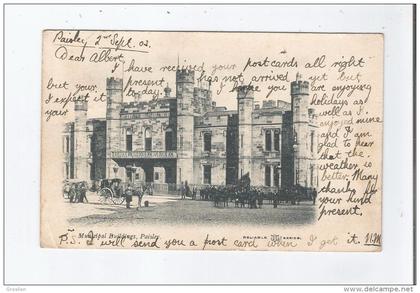 Paisley 2nd Sept. 03
Dear Albert,
I have received your postcards all right
but your present has not arrived yet but
I expect it to-day.
I hear that you are enjoying
your holidays as
well as I
enjoyed mine
and I am
glad to hear
that the
weather is
better. Many
thanks for
your kind
present.
Municipal Buildings, Paisley.
RELIABLE SERIES.
P.S. I will send you a post card when I get it. W.M.
www.delcampe.net